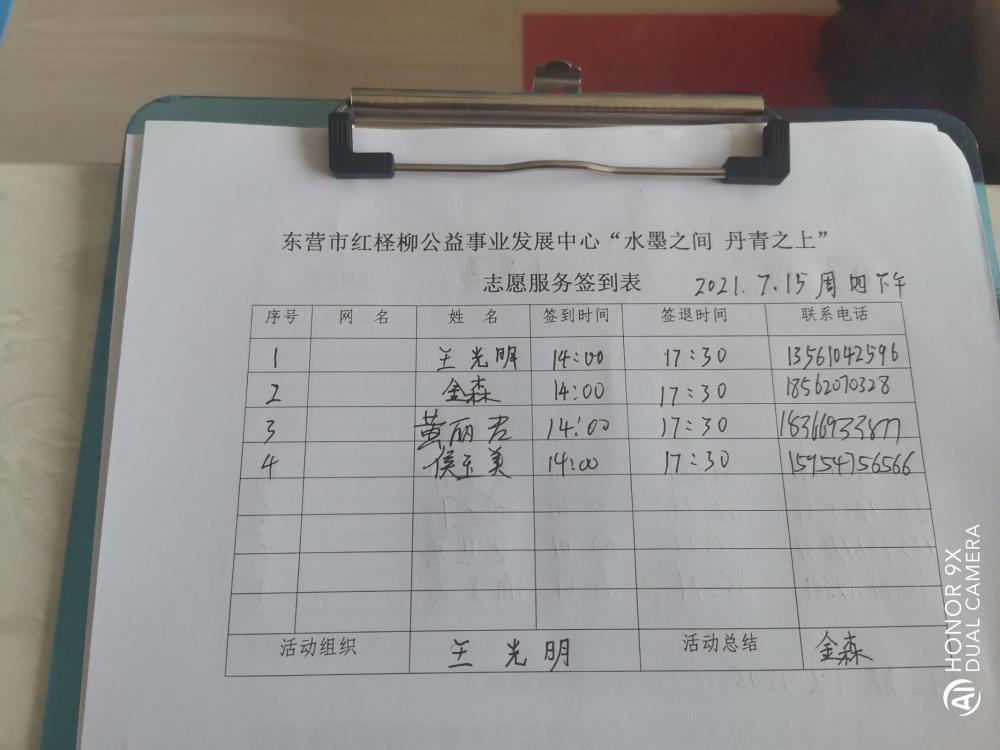 东营市红柽柳公益事业发展中心“水墨之间 丹青之上”
志愿服务签到表 2021.7.15周四下午
序号 网 名 姓 名 签到时间 签退时间 联系电话
1 王光明 14:00 17:30 13561042596
2 金森 14:00 17:30 18562070328
3 黄丽君 14:00 17:30 18366933877
4 侯玉美 14:00 17:30 15954756566
活动组织 王光明 活动总结 金森
HONOR 9X
DUAL CAMERA